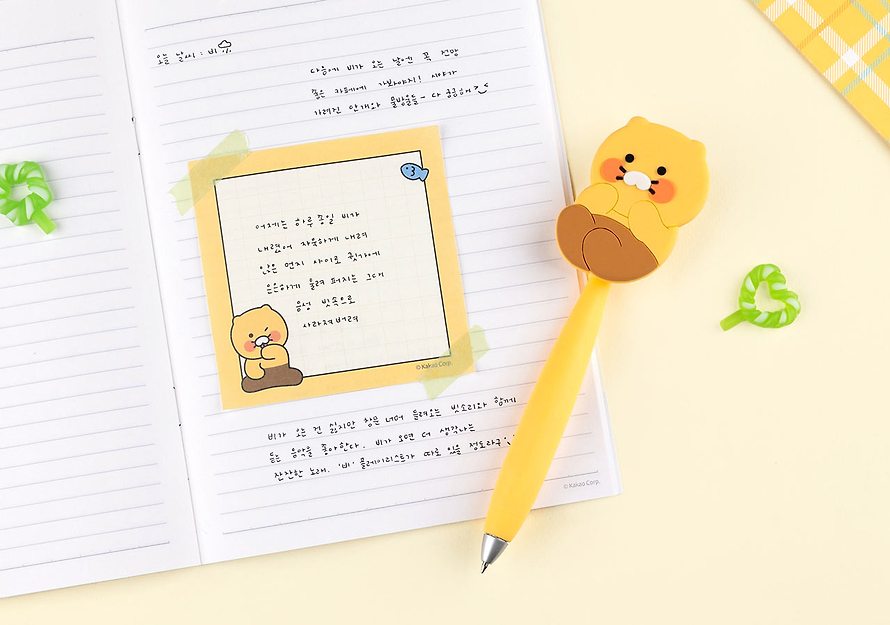 오늘 날씨 : 비
다음에 비가 오는 날엔 꼭 전망
좋은 카페에 가봐야지! 시야가
가려진 안개와 물방울들~ 다 궁금해?
어제는 하루 종일 비가
내렸어 자욱하게 내려
앉은 먼지 사이로 귓가에
은은하게 울려 퍼지는 그대
음성 빗속으로
사라져버려
© Kakao Corp.
비가 오는 건 싫지만 창문 너머 들려오는 빗소리와 함께
듣는 음악을 좋아한다. 비가 오면 더 생각나는
잔잔한 노래. '비' 플레이리스트가 따로 있을 정도라구;
© Kakao Corp.